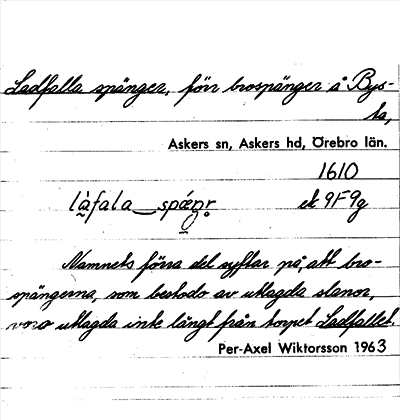 Ladfalla spänger, förr brospänger å Bys-
ta,
Askers sn, Askers hd, Örebro län.
1610
làfala‿spæŋr ek 9F9g
Namnets förra del syftar på, att bro-
spängerna, som bestodo av utlagda slanor,
voro utlagda inte långt från torpet Ladfallet.
Per-Axel Wiktorsson 1963